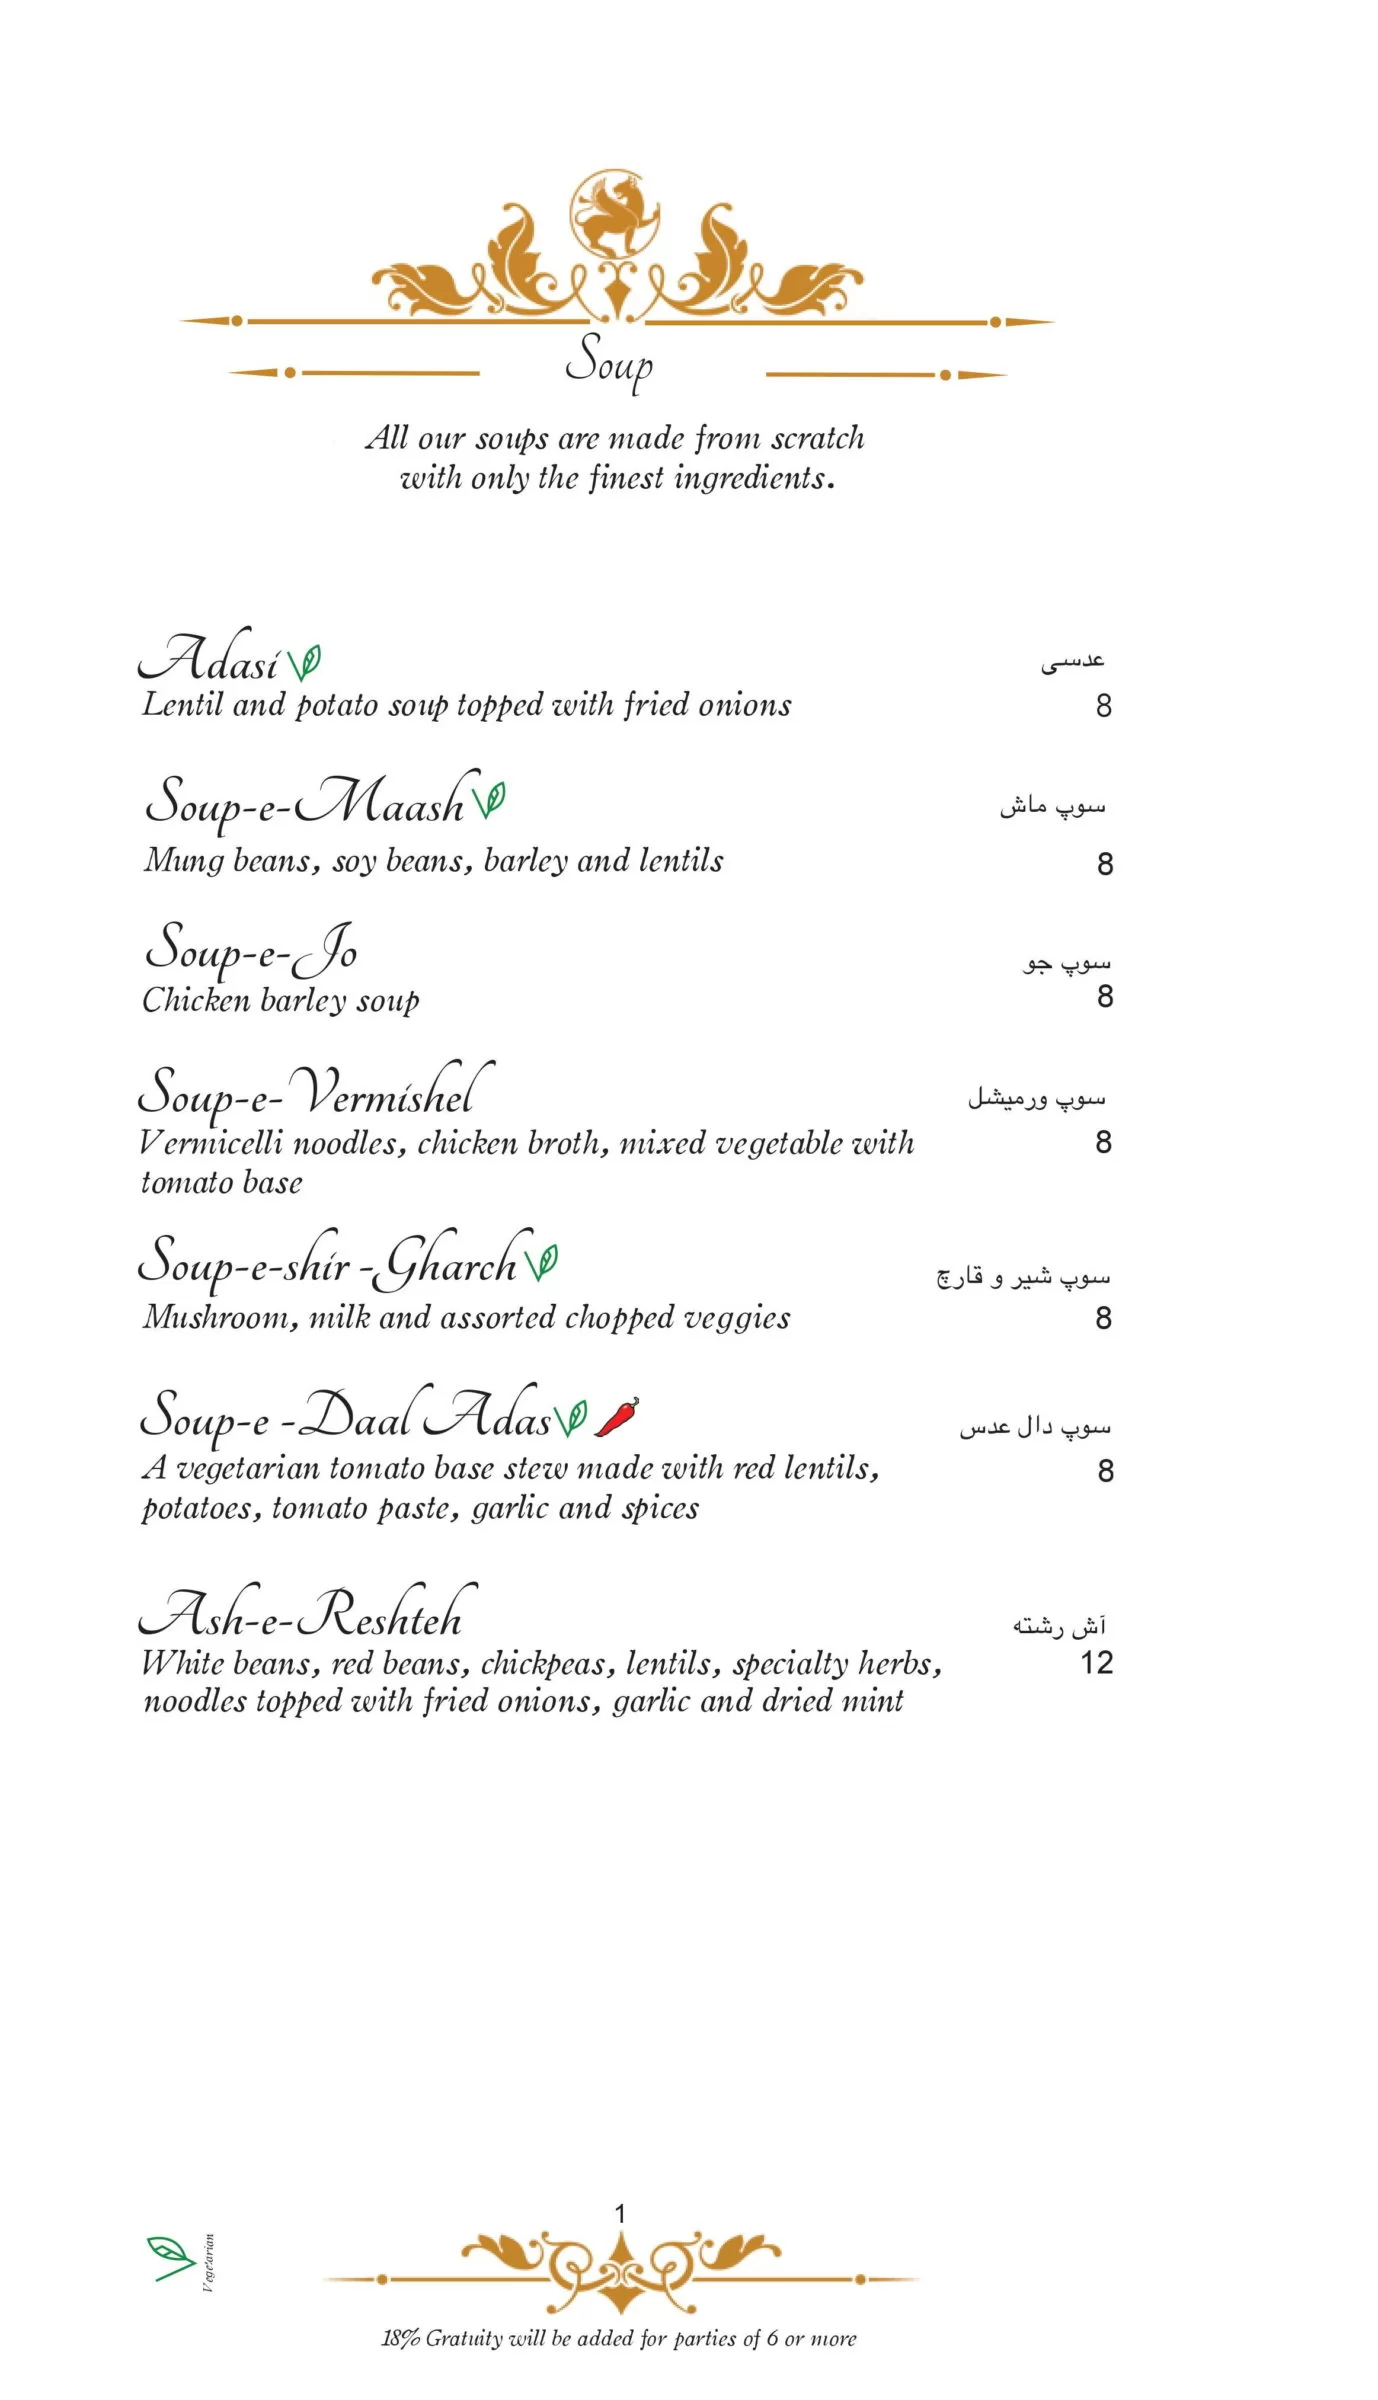 Soup
All our soups are made from scratch
with only the finest ingredients.
Adasi عدسی
Lentil and potato soup topped with fried onions 8
Soup-e-Maash سوپ ماش
Mung beans, soy beans, barley and lentils 8
Soup-e-Jo سوپ جو
Chicken barley soup 8
Soup-e-Vermishel سوپ ورمیشل
Vermicelli noodles, chicken broth, mixed vegetable with 8
tomato base
Soup-e-shir -Gharch سوپ شیر و قارچ
Mushroom, milk and assorted chopped veggies 8
Soup-e -Daal Adas سوپ دال عدس
A vegetarian tomato base stew made with red lentils, 8
potatoes, tomato paste, garlic and spices
Ash-e-Reshteh آش رشته
White beans, red beans, chickpeas, lentils, specialty herbs, 12
noodles topped with fried onions, garlic and dried mint
1
Vegetarian
18% Gratuity will be added for parties of 6 or more